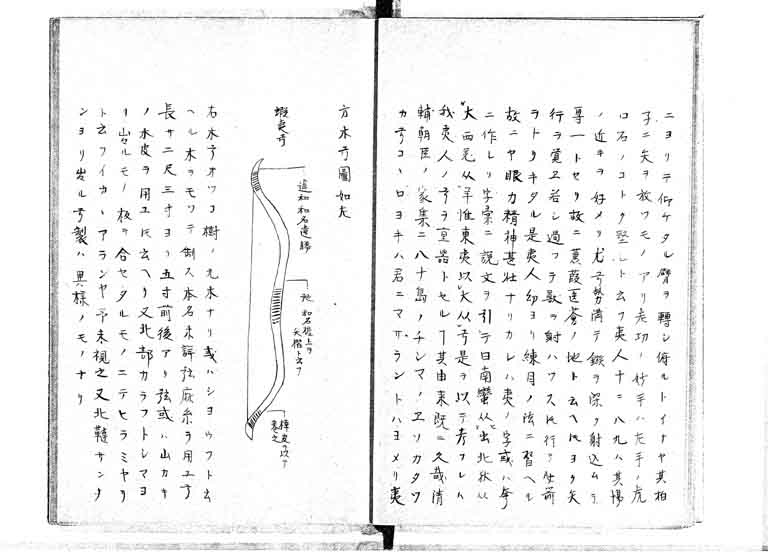 ニヨリテ仰ケタル臂ヲ轉シ俯ルトイナヤ其相
子ニ矢ヲ放ツモノアリ老功ノ射手ハ左手ノ虎
口石ノコトク堅シト云フ夷人十ニ八九ハ其場
ノ近キヲ好メリ尤弓勢満テ鏃ヲ深ク射込ムヲ
専一トセリ故ニ蒹葭蓬蒼ノ地ト云ヘ𪜈ヨク矢
行ヲ覚ヱ若シ過ツテ数ヲ射ハフス𪜈行ク矢前
ラトクキタル是夷人幼ヨリ練月ノ法ニ習ヘル
故ニヤ眼力精神甚壮ナリカレハ夷ノ字或ハ
ニ作レリ字彙ニ説文ヲ引テ曰南蠻从虫北狄从
犬西羌从羊惟東夷以大从弓是ヲ以テ考フレハ
我夷人ノ弓ヲ重器トセル丁其由来既ニ久哉清
輔朝臣ノ家集ニ八十島ノチシマノヱソカタツ
カ弓コヽロヨキハ君ニマサラントハヨメリ夷
方木弓圖如左
蝦夷弓
和名
弛 和名
樺皮ヲ以テ
巻之
右木弓オツコ樹ノ丸木ナリ或ハシヨウフト云
ヘル木ヲモツテ制ス本名未詳弦麻糸ヲ用ユ弓
長サ二尺三寸ヨリ五寸前後アリ弦或ハ山カキ
ノ木皮ヲ用ユ𪜈云ヘリ又北部カラフトシマヨ
リ出ルモノ板ヲ合セタルモノニテヒラミヤリ
ト云フイカヽアランヤ予未視之又北韃サンタ
ンヨリ出ル弓製ハ異様ノモノナリ